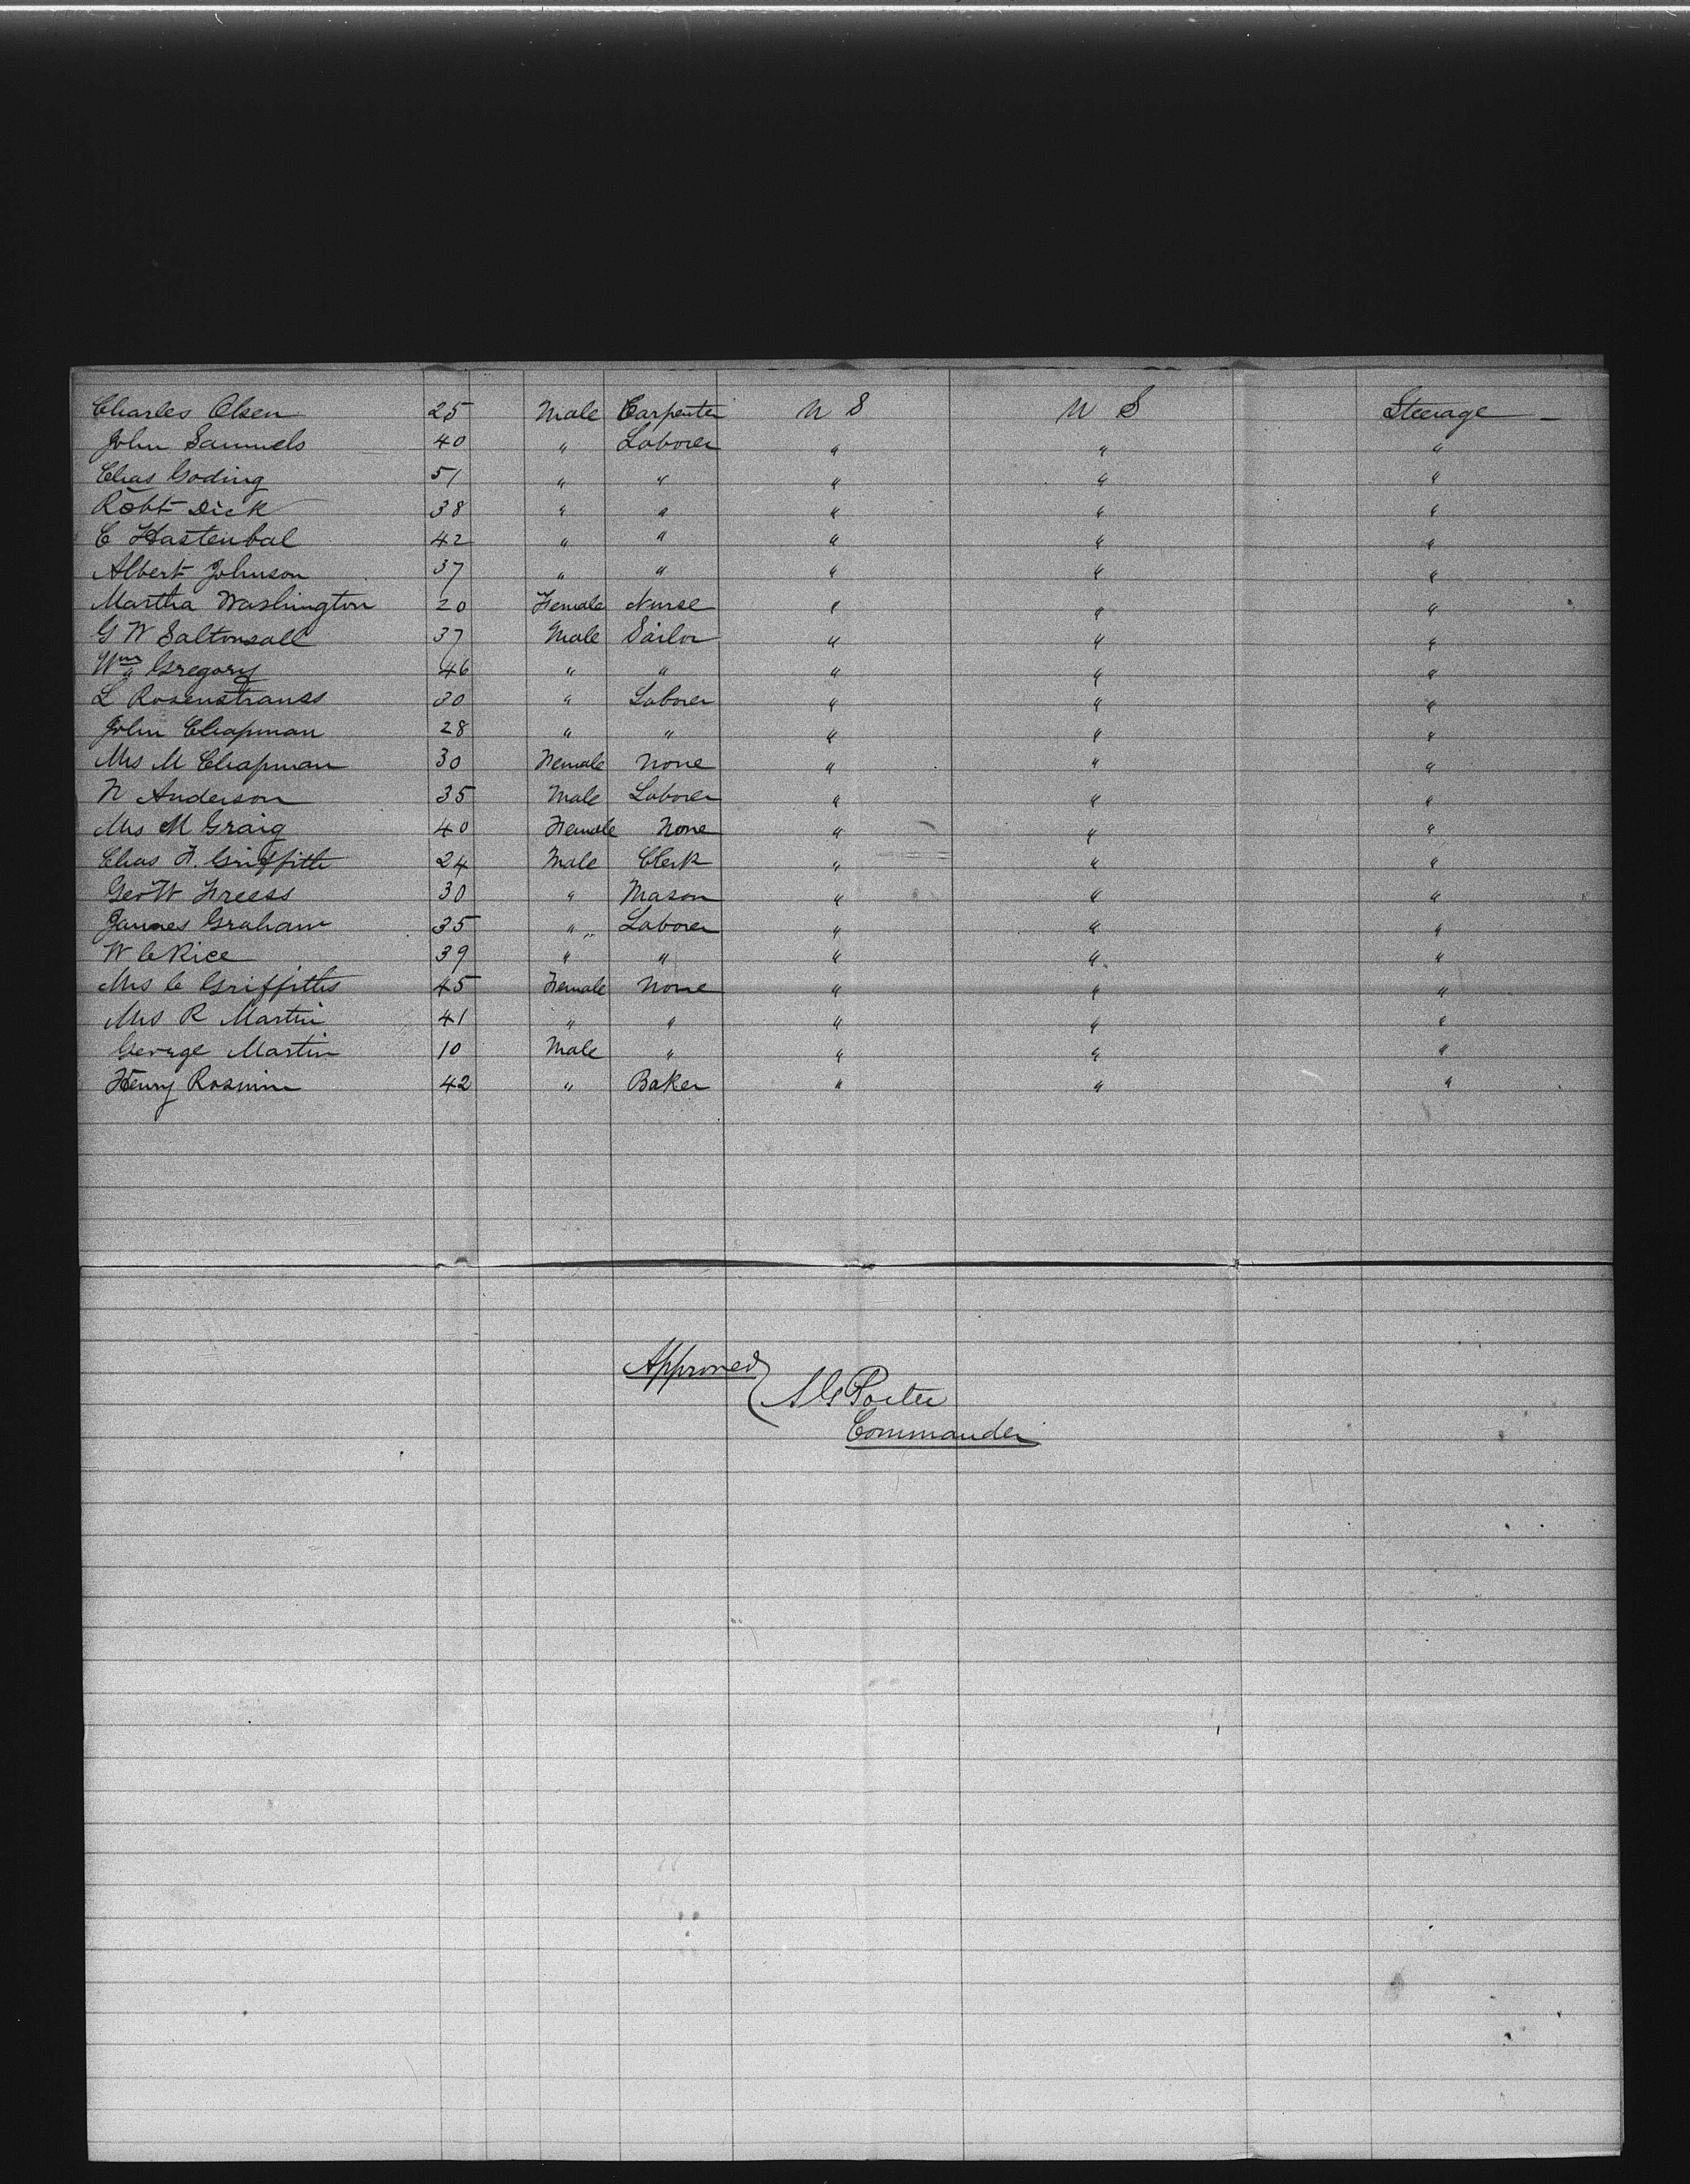 Charles Olsen 25 Male Carpenter U S U S Steerage
John Samuels 40 " Laborer " " "
Chas Goding 51 " " " " "
Robt Dick 38 " " " " "
C Hastenbal 42 " " " " "
Albert Johnson 37 " " " " "
Martha Washington 20 Female Nurse " " "
G W Saltonsall 37 Male Sailor " " "
Wm Gregory 46 " " " " "
L Rosenstrauss 30 " Laborer " " "
John Chapman 28 " " " " "
Mrs M Chapman 30 Female None " " "
N Anderson 35 Male Laborer " " "
Mrs M Graig 40 Female None " " "
Chas F. Griffith 24 Male Clerk " " "
Geo W Freess 30 " Mason " " "
James Graham 35 " Laborer " " "
W C Rice 39 " " " " "
Mrs C Griffiths 45 Female None " " "
Mrs R Martin 41 " " " " "
George Martin 10 Male " " " "
Henry Rosminn 42 " Baker " " "
Approved
S G Porter
Commander